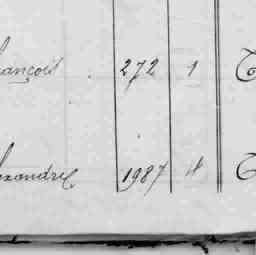 rançois 272 1
exandre 1987 4